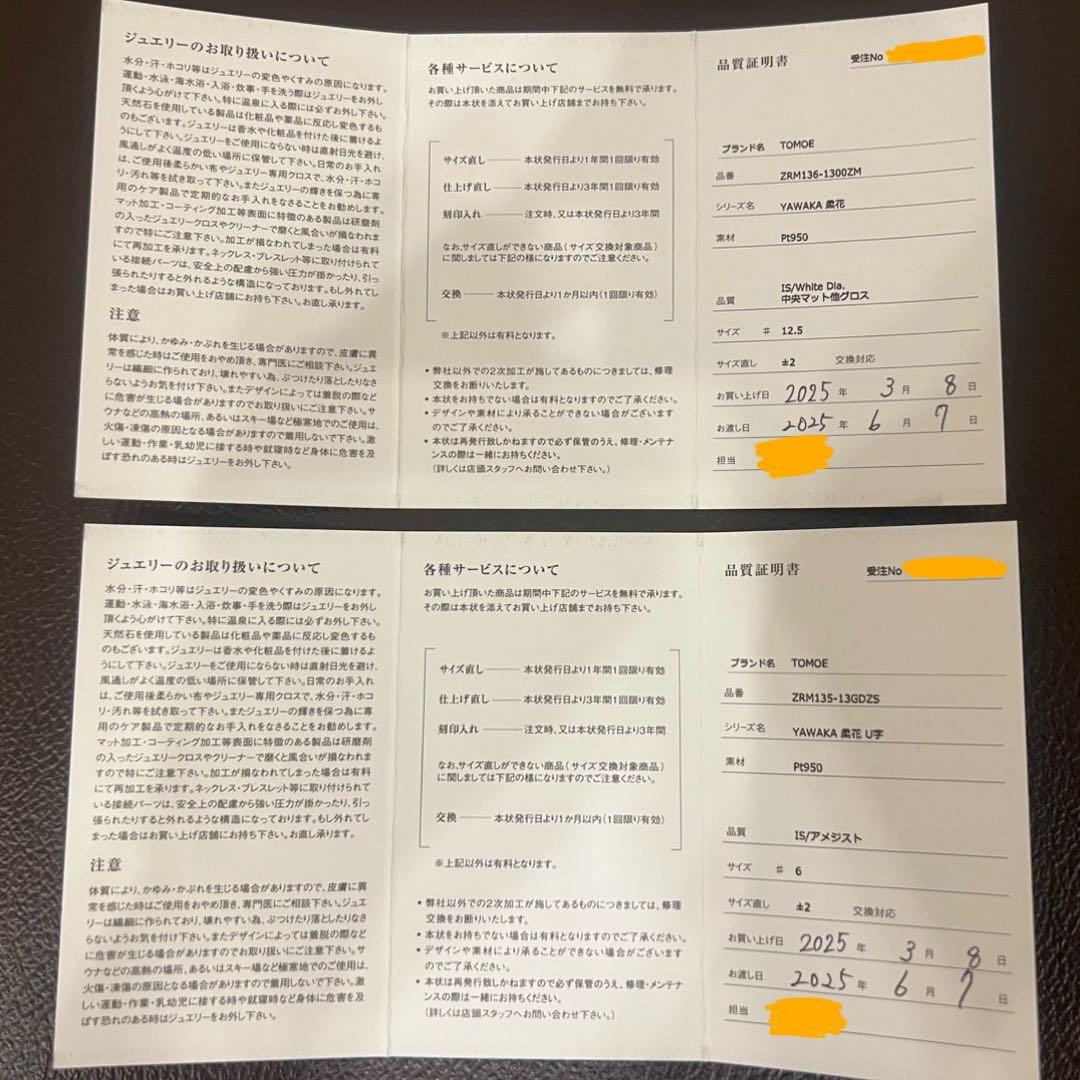 ジュエリーのお取り扱いについて
水分・汗・ホコリ等はジュエリーの変色やくすみの原因になります。
運動・水泳・海水浴・入浴・炊事・手を洗う際はジュエリーをお外し
頂くよう心がけて下さい。特に温泉に入る際には必ずお外し下さい。
天然石を使用している製品は化粧品や薬品に反応し変色するも
のもございます。ジュエリーは香水や化粧品を付けた後に着けるよ
うにして下さい。ジュエリーをご使用にならない時は直射日光を避け、
風通しがよく温度の低い場所に保管して下さい。日常のお手入れ
は、ご使用後柔らかい布やジュエリー専用クロスで、水分・汗・ホコ
リ・汚れ等を拭き取って下さい。またジュエリーの輝きを保つ為に専
用のケア製品で定期的なお手入れをなさることをお勧めします。
マット加工・コーティング加工等表面に特徴のある製品は研磨剤
の入ったジュエリークロスやクリーナーで磨くと風合いが損なわれま
すので特にご注意下さい。加工が損なわれてしまった場合は有料
にて再加工を承ります。ネックレス・ブレスレット等に取り付けられて
いる接続パーツは、安全上の配慮から強い圧力が掛かったり、引っ
張られたりすると外れるような構造になっております。もし外れてし
まった場合はお買い上げ店舗にお持ち下さい。お直し承ります。
注意
体質により、かゆみ・かぶれを生じる場合がありますので、皮膚に異
常を感じた時はご使用をおやめ頂き、専門医にご相談下さい。ジュエ
リーは繊細に作られており、壊れやすい為、ぶつけたり落としたりなさ
らないようお気を付け下さい。またデザインによっては着脱の際など
に危害が生じる場合がありますのでお取り扱いにご注意下さい。サ
ウナなどの高熱の場所、あるいはスキー場など極寒地でのご使用は、
火傷・凍傷の原因となる場合がありますので着用しないで下さい。激
しい運動・作業・乳幼児に接する時や就寝時など身体に危害を及
ぼす恐れのある時はジュエリーをお外し下さい。
各種サービスについて
お買い上げ頂いた商品は期間中下記のサービスを無料で承ります。
その際は本状を添えてお買い上げ店舗までお持ち下さい。
サイズ直し――本状発行日より1年間1回限り有効
仕上げ直し――本状発行日より3年間1回限り有効
刻印入れ――注文時、又は本状発行日より3年間
なお、サイズ直しができない商品(サイズ交換対象商品)
に関しましては下記の様になりますのでご注意ください。
交換――本状発行日より1か月以内(1回限り有効)
※上記以外は有料となります。
• 弊社以外での2次加工が施してあるものにつきましては、修理
交換をお断りいたします。
• 本状をお持ちでない場合は有料となりますのでご了承ください。
• デザインや素材により承ることができない場合がございます
のでご了承ください。
• 本状は再発行致しかねますので必ず保管のうえ、修理・メンテナ
ンスの際は一緒にお持ちください。
(詳しくは店頭スタッフへお問い合わせ下さい。)
品質証明書 受注No
ブランド名 TOMOE
品番 ZRM136-1300ZM
シリーズ名 YAWAKA 柔花
素材 Pt950
品質 IS/White Dia.
中央マット他グロス
サイズ # 12.5
サイズ直し ±2 交換対応
お買い上げ日 2025 年 3 月 8 日
お渡し日 2025 年 6 月 7 日
担当
ジュエリーのお取り扱いについて
水分・汗・ホコリ等はジュエリーの変色やくすみの原因になります。
運動・水泳・海水浴・入浴・炊事・手を洗う際はジュエリーをお外し
頂くよう心がけて下さい。特に温泉に入る際には必ずお外し下さい。
天然石を使用している製品は化粧品や薬品に反応し変色するも
のもございます。ジュエリーは香水や化粧品を付けた後に着けるよ
うにして下さい。ジュエリーをご使用にならない時は直射日光を避け、
風通しがよく温度の低い場所に保管して下さい。日常のお手入れ
は、ご使用後柔らかい布やジュエリー専用クロスで、水分・汗・ホコ
リ・汚れ等を拭き取って下さい。またジュエリーの輝きを保つ為に専
用のケア製品で定期的なお手入れをなさることをお勧めします。
マット加工・コーティング加工等表面に特徴のある製品は研磨剤
の入ったジュエリークロスやクリーナーで磨くと風合いが損なわれま
すので特にご注意下さい。加工が損なわれてしまった場合は有料
にて再加工を承ります。ネックレス・ブレスレット等に取り付けられて
いる接続パーツは、安全上の配慮から強い圧力が掛かったり、引っ
張られたりすると外れるような構造になっております。もし外れてし
まった場合はお買い上げ店舗にお持ち下さい。お直し承ります。
注意
体質により、かゆみ・かぶれを生じる場合がありますので、皮膚に異
常を感じた時はご使用をおやめ頂き、専門医にご相談下さい。ジュエ
リーは繊細に作られており、壊れやすい為、ぶつけたり落としたりなさ
らないようお気を付け下さい。またデザインによっては着脱の際など
に危害が生じる場合がありますのでお取り扱いにご注意下さい。サ
ウナなどの高熱の場所、あるいはスキー場など極寒地でのご使用は、
火傷・凍傷の原因となる場合がありますので着用しないで下さい。激
しい運動・作業・乳幼児に接する時や就寝時など身体に危害を及
ぼす恐れのある時はジュエリーをお外し下さい。
各種サービスについて
お買い上げ頂いた商品は期間中下記のサービスを無料で承ります。
その際は本状を添えてお買い上げ店舗までお持ち下さい。
サイズ直し――本状発行日より1年間1回限り有効
仕上げ直し――本状発行日より3年間1回限り有効
刻印入れ――注文時、又は本状発行日より3年間
なお、サイズ直しができない商品(サイズ交換対象商品)
に関しましては下記の様になりますのでご注意ください。
交換――本状発行日より1か月以内(1回限り有効)
※上記以外は有料となります。
• 弊社以外での2次加工が施してあるものにつきましては、修理
交換をお断りいたします。
• 本状をお持ちでない場合は有料となりますのでご了承ください。
• デザインや素材により承ることができない場合がございます
のでご了承ください。
• 本状は再発行致しかねますので必ず保管のうえ、修理・メンテナ
ンスの際は一緒にお持ちください。
(詳しくは店頭スタッフへお問い合わせ下さい。)
品質証明書 受注No
ブランド名 TOMOE
品番 ZRM135-13GDZS
シリーズ名 YAWAKA 柔花 U字
素材 Pt950
品質 IS/アメジスト
サイズ # 6
サイズ直し ±2 交換対応
お買い上げ日 2025 年 3 月 8 日
お渡し日 2025 年 6 月 7 日
担当